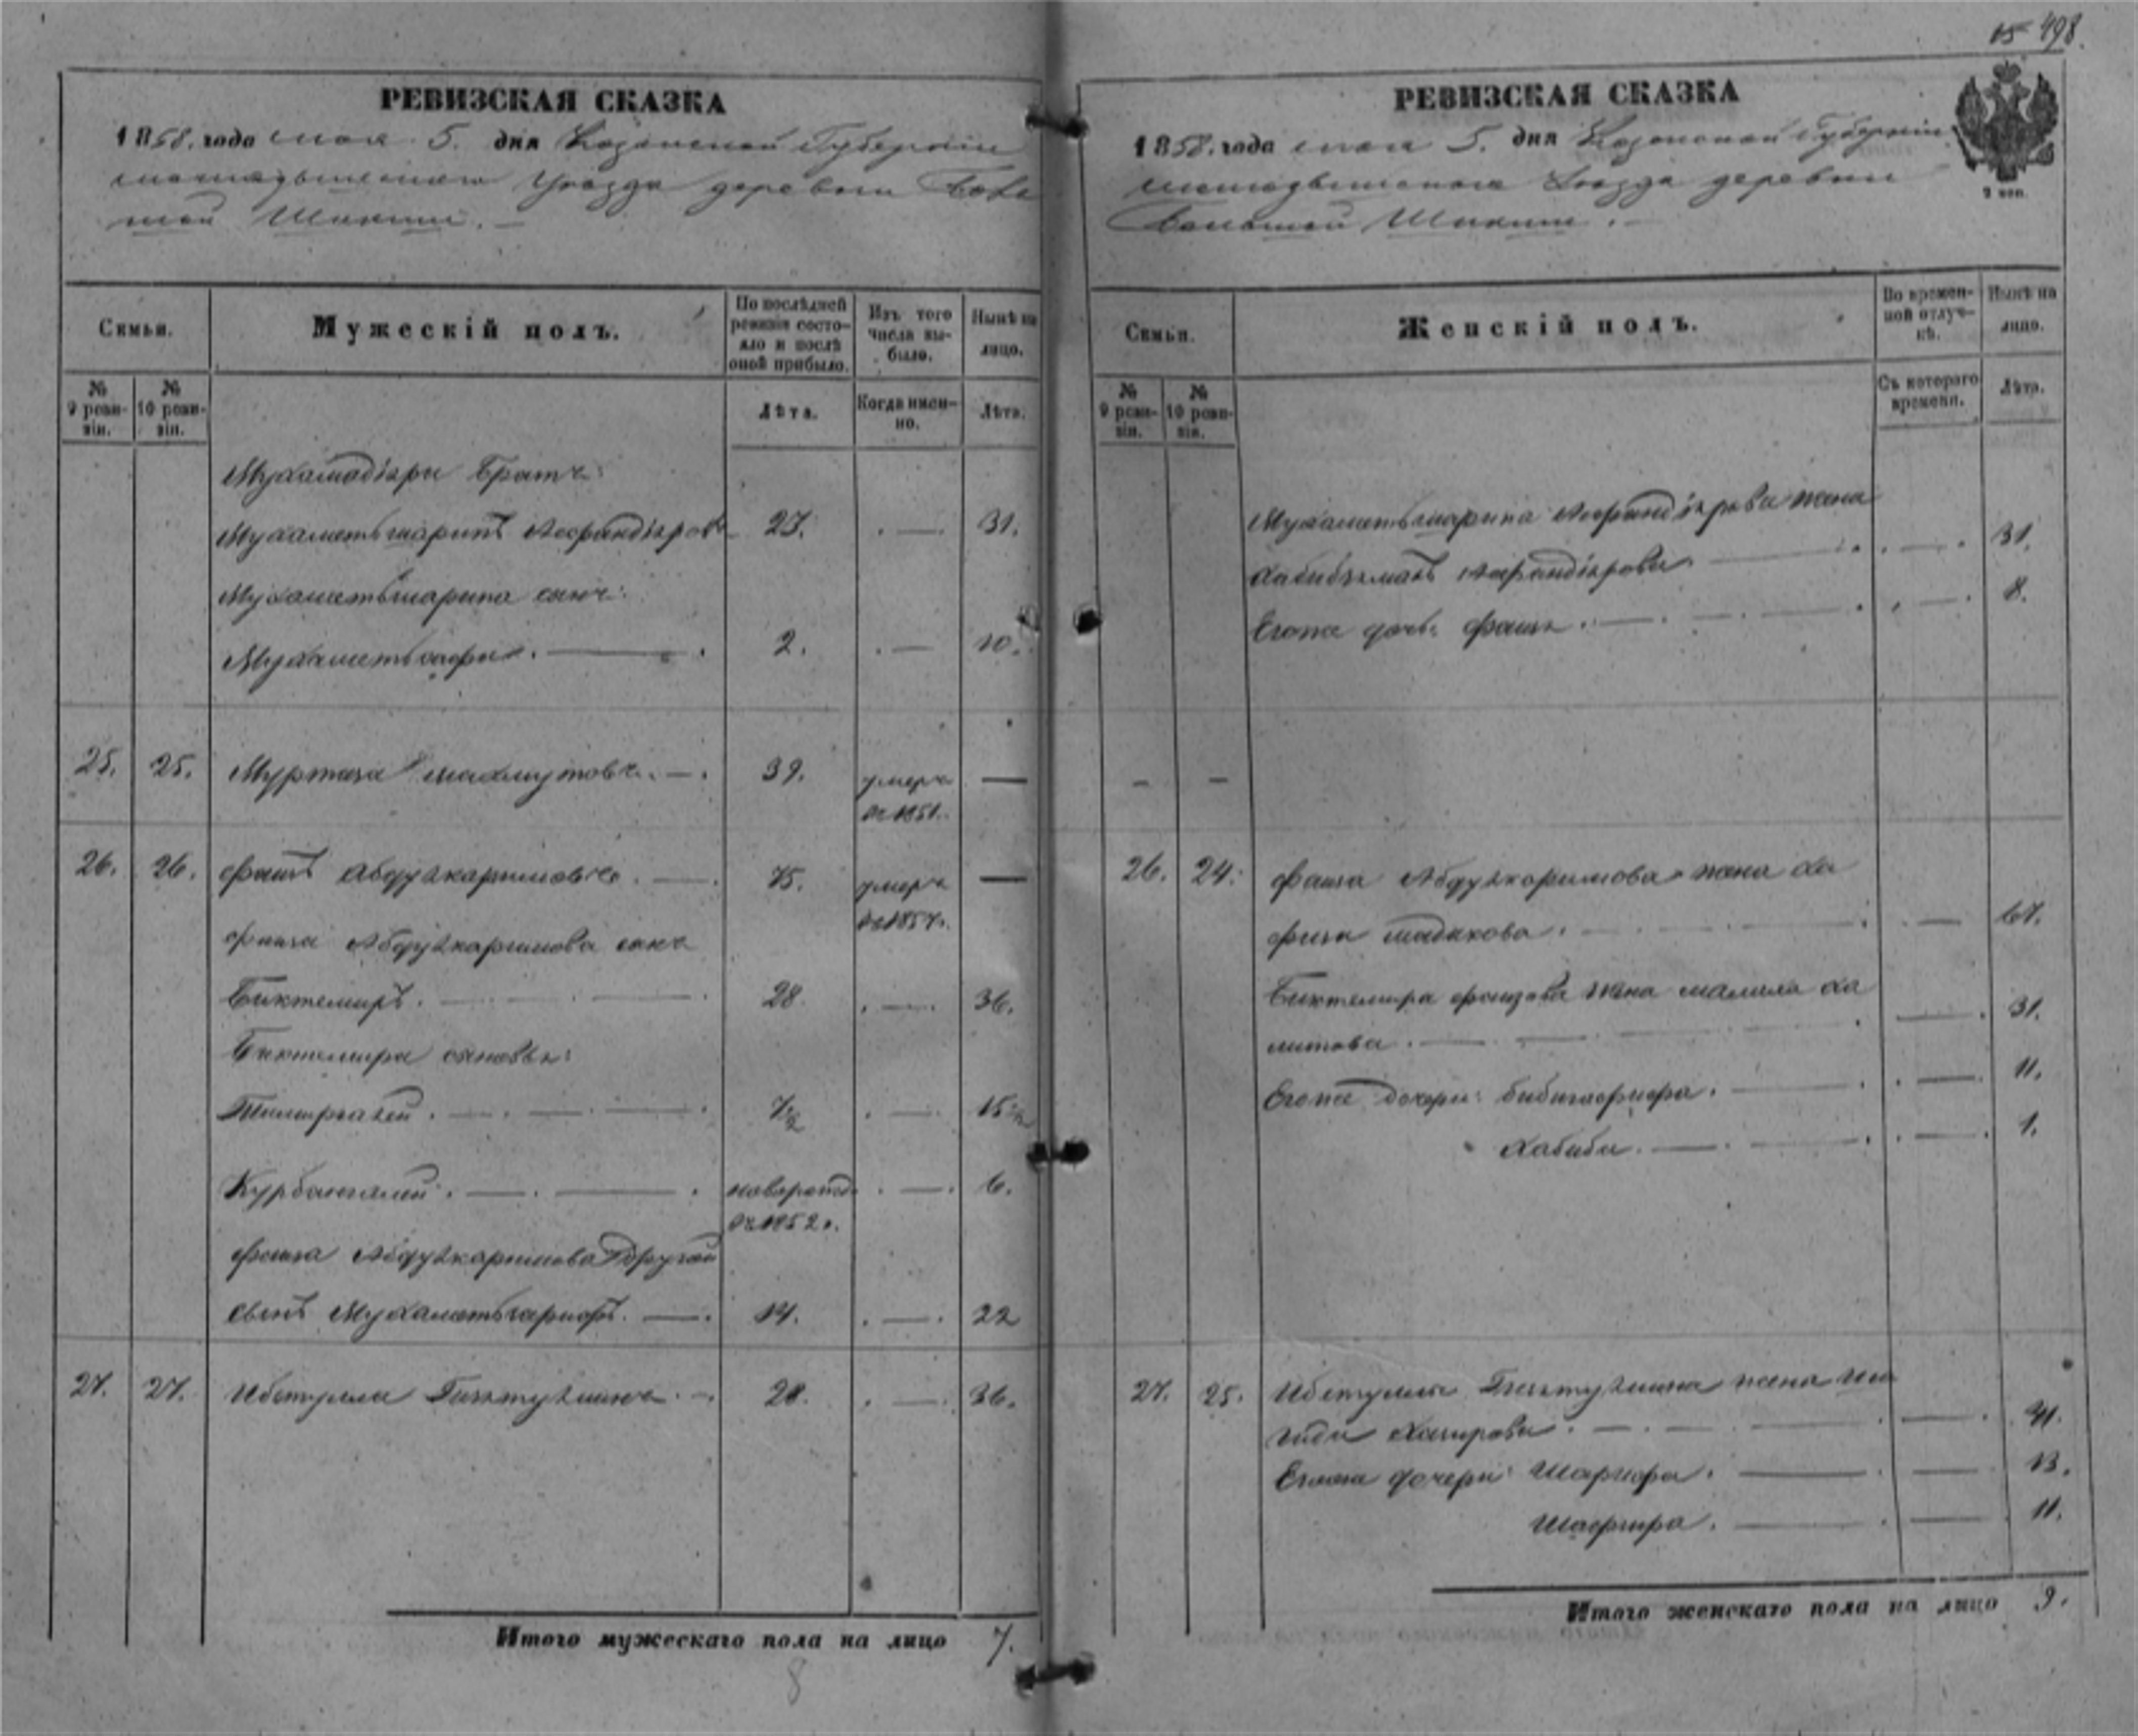 15 498.
РЕВИЗСКАЯ СКАЗКА
1858. года мая 5. дня Казанской Губернiи
Мамадышскаго Уѣзда деревни Боль
шой Шикши.
Семьи.
Мужескiй полъ.
По послѣдней ревизiи состояло и послѣ оной прибыло.
Изъ того числа выбыло.
Нынѣ на лицо.
№ 9 ревизiи.
№ 10 ревизiи.
Лѣта.
Когда именно.
Лѣта.
братъ:
Мухаметьшарипъ 23. 31.
Мухаметьшарипа сынъ:
Мухаметьсафа 2. 10.
25. 25. Муртаза Махмутовъ. 39. умеръ
въ 1851.
26. 26. Фаизъ Абдулкаримовъ. 75. умеръ
въ 1857.
Фаиза Абдулкаримова сынъ
Биктемиръ. 28 36.
Биктемира сыновья:
7½ 15½
Курбангалей. новорожд. 6.
въ 1852.
Фаиза Абдулкаримова другой
сынъ Мухаметьгарифъ. 14. 22
27. 27. Ибетулла 28. 36.
Итого мужескаго пола на лицо 7.
8
РЕВИЗСКАЯ СКАЗКА
1858. года мая 5. дня Казанской Губернiи
Мамадышскаго Уѣзда деревни
Большой Шикши.
2 коп.
Семьи.
Женскiй полъ.
Во временной отлучкѣ.
Нынѣ на лицо.
№ 9 ревизiи.
№ 10 ревизiи.
Съ котораго времени.
Лѣта.
Мухаметьшарипа жена
31.
Егоже дочь 8.
26. 24. Фаиза Абдулкаримова жена Ха
физа Садыкова. 67.
Биктемира Фаизова жена Ха
литова. 31.
Егоже дочери: Бибигафифа. 11.
Хабиба. 1.
27. 25. Ибетуллы жена
41.
Егоже дочери: Шарифа. 13.
11.
Итого женскаго пола на лицо 9.